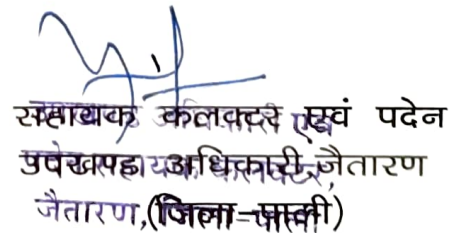 सहायक कलक्टर एवं पदेन
उपखण्ड अधिकारी जैतारण
जैतारण, (जिला-पाली)